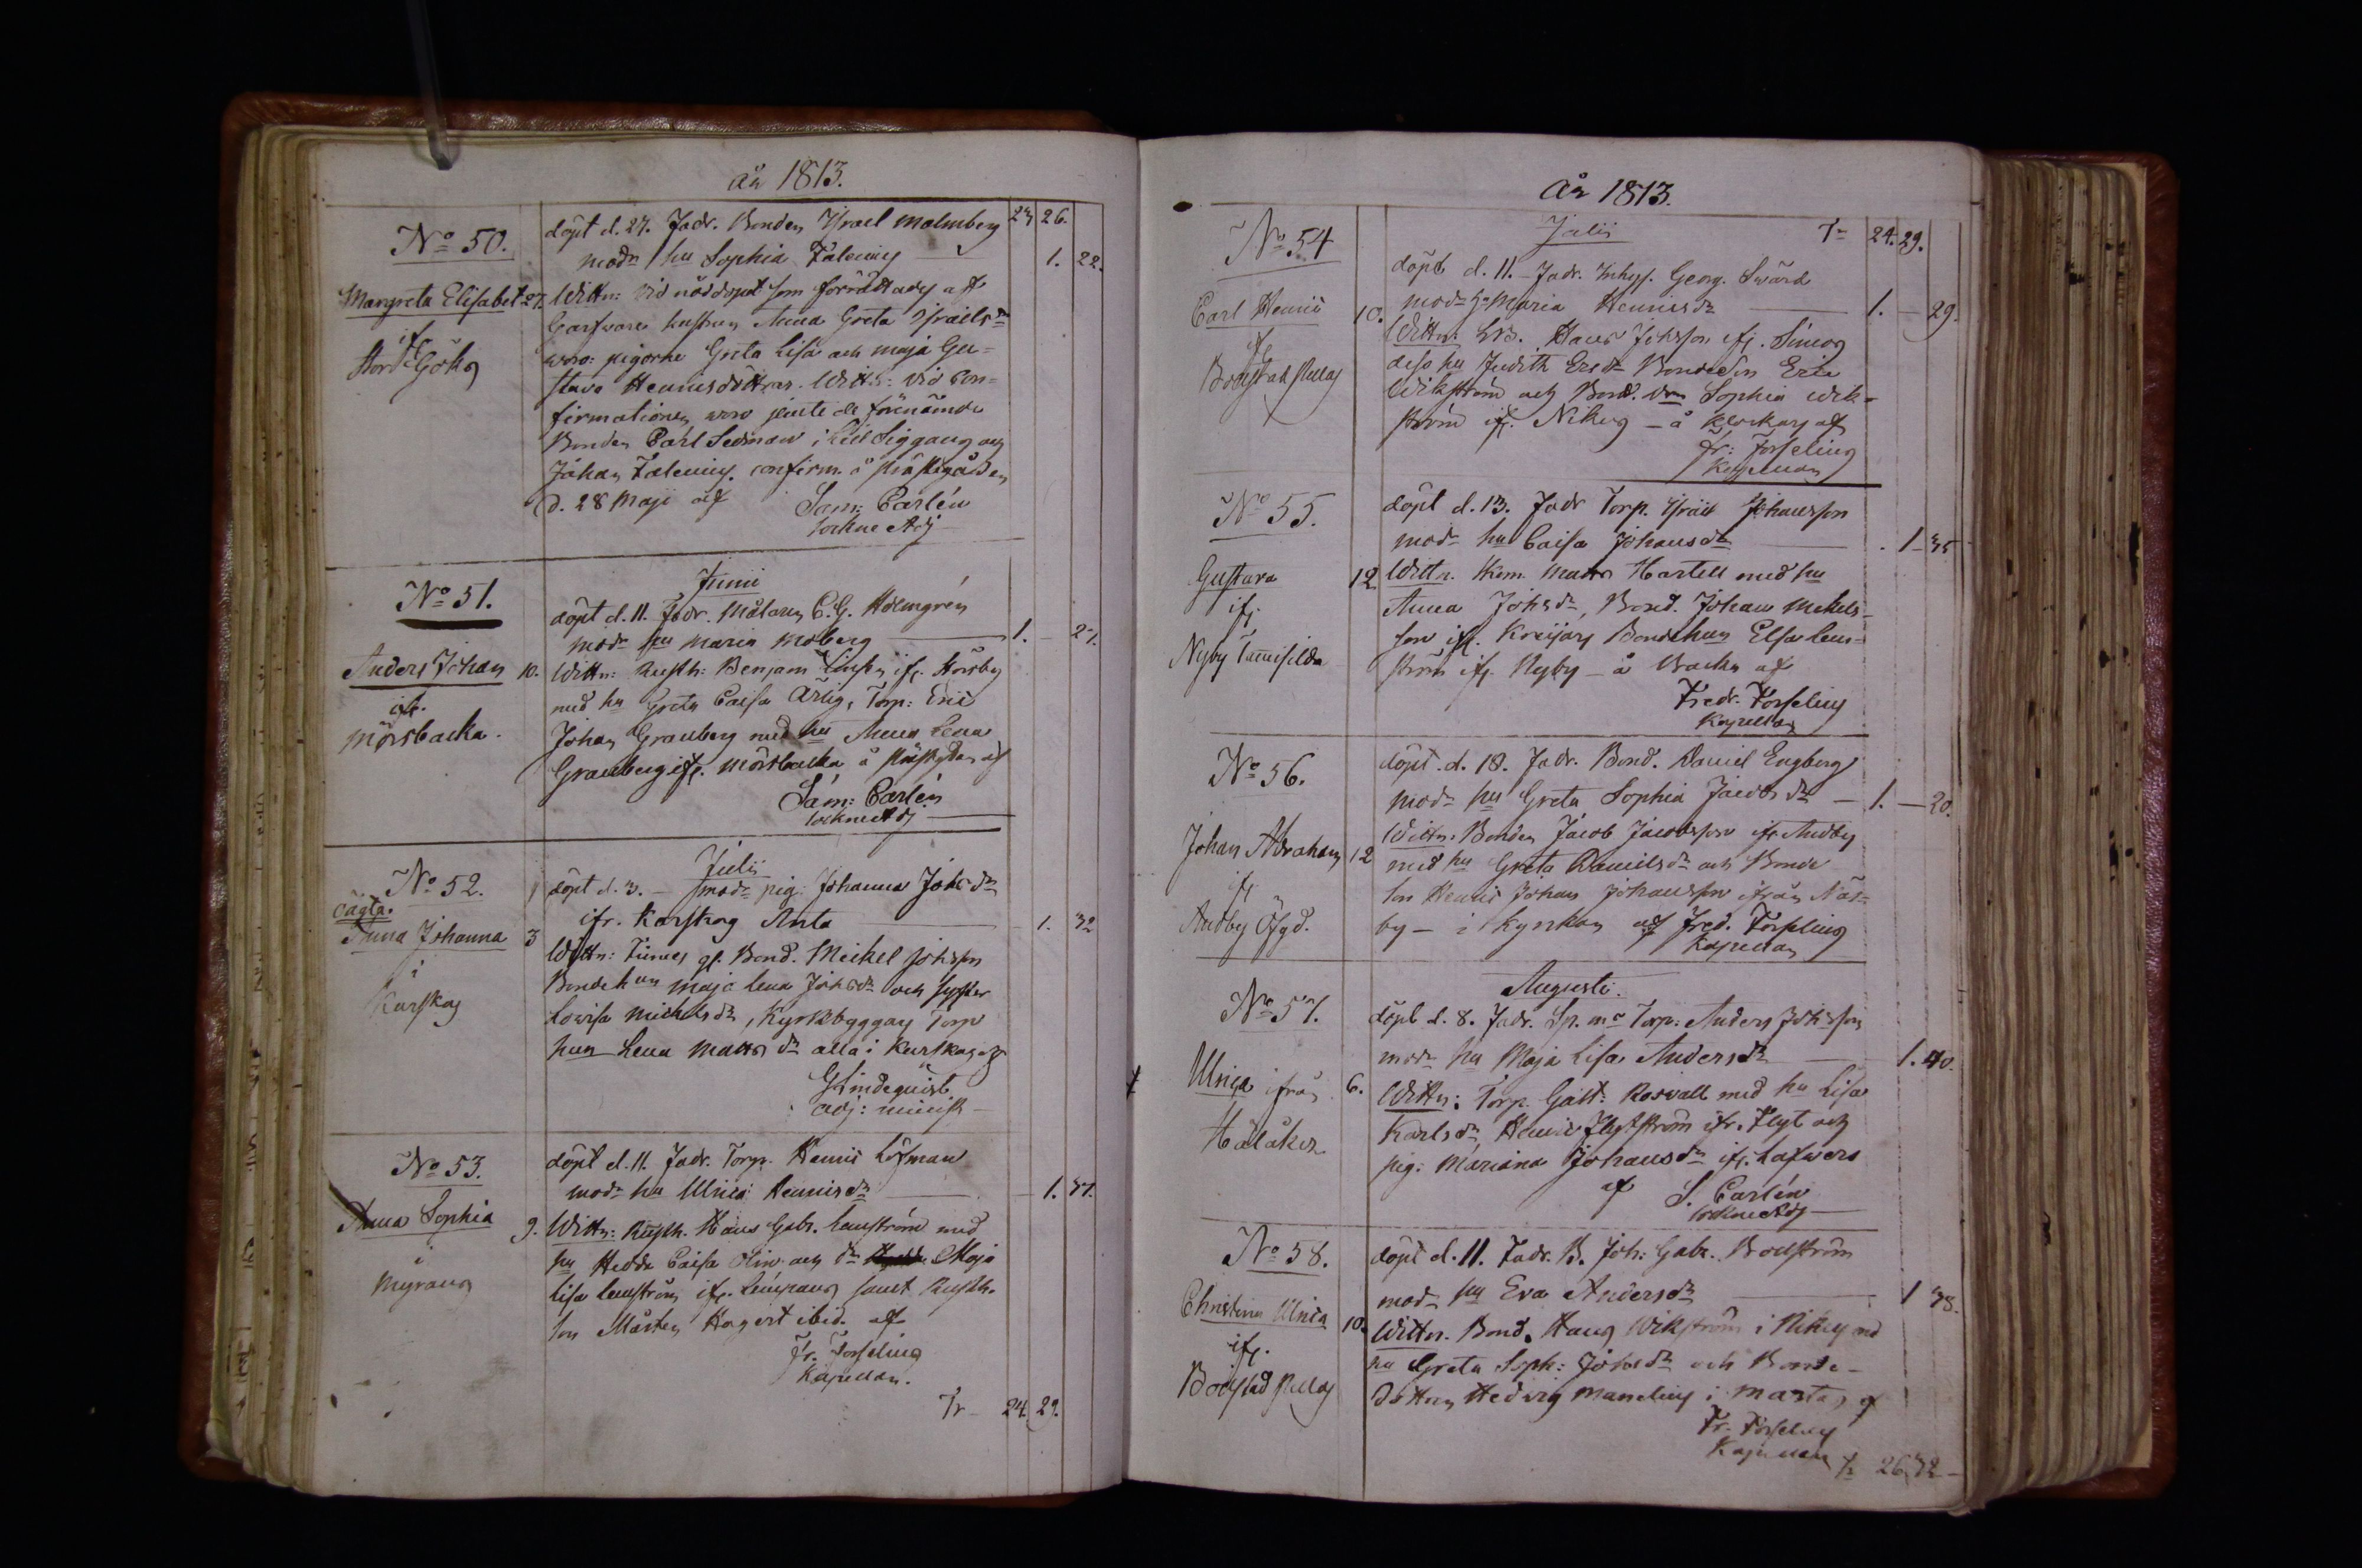 år 1813.
No 50.
Margreta Elisabet 27.
ifr
döpt d. 27. Fadr. Bonden Israel Malmberg 23 26.
modr hu Sophia Falenius 1. 22.
Wittn: vid nöddopet som förrättades af
Garfware hustrun Anna Greta Israelsdr
woro: pigorne Greta Lisa och Maja Gu=
stava Henriksdöttrar. Wittn: vid Con=
firmationen woro jemte de förenämde
Bonden Carl Sedman i
Johan Falenius. confirm. å Prästgården
d. 28 Maji af Sam: Carlén
Sockne Adj
No 51.
Anders Johan 10.
ifr.
Mörsbacka.
Junii
döpt d. 11. Fadr. Målaren C. G. Holmgrén
modr hu Maria Moberg 1. — 27.
Wittn: Rusth: Benjam ifr. Storsby
med hu Greta Caisa Ärlig, Torp: Eric
Johan Granberg med hu Anna Lena
Granberg ifr. Mörsbacka å af
Sam: Carlén
Sockne Adj
No 52.
oägta.
Anna Johanna 3
i
Karskog
Julii
döpt d. 3. — modr pig: Johanna Johsdr
ifr. Karskog Anta 1. 32
Wittn: Bond. Mickel Johsson
Bondehun Maja Lena Johsdr och syster
Lovisa Michelsdr, Kyrkbyggan Torp
hun Lena Mattsdr alla i Karskog af
G Lindequist
adj: minist
No 53.
Anna Sophia 9.
i
Myrans
döpt d. 11. Fadr. Torp. Henric Löfman
modr hu Ulrica Henricsdr 1. 37.
Wittn: Rusth. Hans Gabr. Lenström med
hu Hedda Caisa Olin och dr Maja
Lisa Lenström ifr. samt Rusth.
son Mårten Hagert ibid. af
Fr. Forselius
Kapellan.
Tr 24. 29.
år 1813.
Julii Tr 24. 29.
No 54
Carl Henric 10.
ifr
döpt d. 11. — Fadr. Inhys. Georg. Swärd
modr hu Maria Henricsdr 1. — 29.
Wittn: Hans Johsson ifr. Simos
dess hu Judith Ersdr Bondeson Eric
Wikström och Bond. dr Sophia Wik=
ström ifr. Nikus — å Klockars af
Fr: Forselius
Kapellan
No 55.
Gustava 12
ifr.
Nyby
döpt d. 13. Fadr Torp. Israel Johansson
modr hu Caisa Johansdr 1 — 35
Wittn. Kem. Matts Hartell med hu
Anna Johsdr, Bond. Johan Mickels=
son ifr. Bondehun Elsa Len=
ström ifr. Nyby — å Backa af
Fredr. Forselius
Kapellan
No 56.
Johan Abraham 12
ifr
Andby Öfgd.
döpt d. 18. Fadr. Bond. Daniel Engberg
modr hu Greta Sophia Jacobsdr — 1. — 20.
Wittn. Bonden Jacob Jacobsson ifr Andby
med hu Greta Danielsdr och Bonde
son Henric Johan Johansson ifrån Näs=
by — i kyrkan af Fred. Forselius
Kapellan
No 57.
Ulrica ifrån 6.
Hålåker
Augusti.
döpt d. 8. Fadr. Sp. mr Torp: Anders Johsson
modr hu Maja Lisa Andersdr 1. 40.
Wittn: Torp. Gust: Rosvall med hu Lisa
Karlsdr, Henric Flytström ifr. Flyt och
pig: Mariana Johansdr ifr. Lafwers
af S. Carlén
Sockne Adj
No 58.
Christina Ulrica 10.
ifr.
döpt d. 11. Fadr. B. Joh: Gabr. Bollström
modr hu Eva Andersdr 1 38.
Wittn. Bond. Hans Wikström i Nikus med
hu Greta Soph: Johsdr och Bonde=
dottren Hedvig Manelius i Marta af
Fr. Forselius
Kapellan Tr 26 32 —